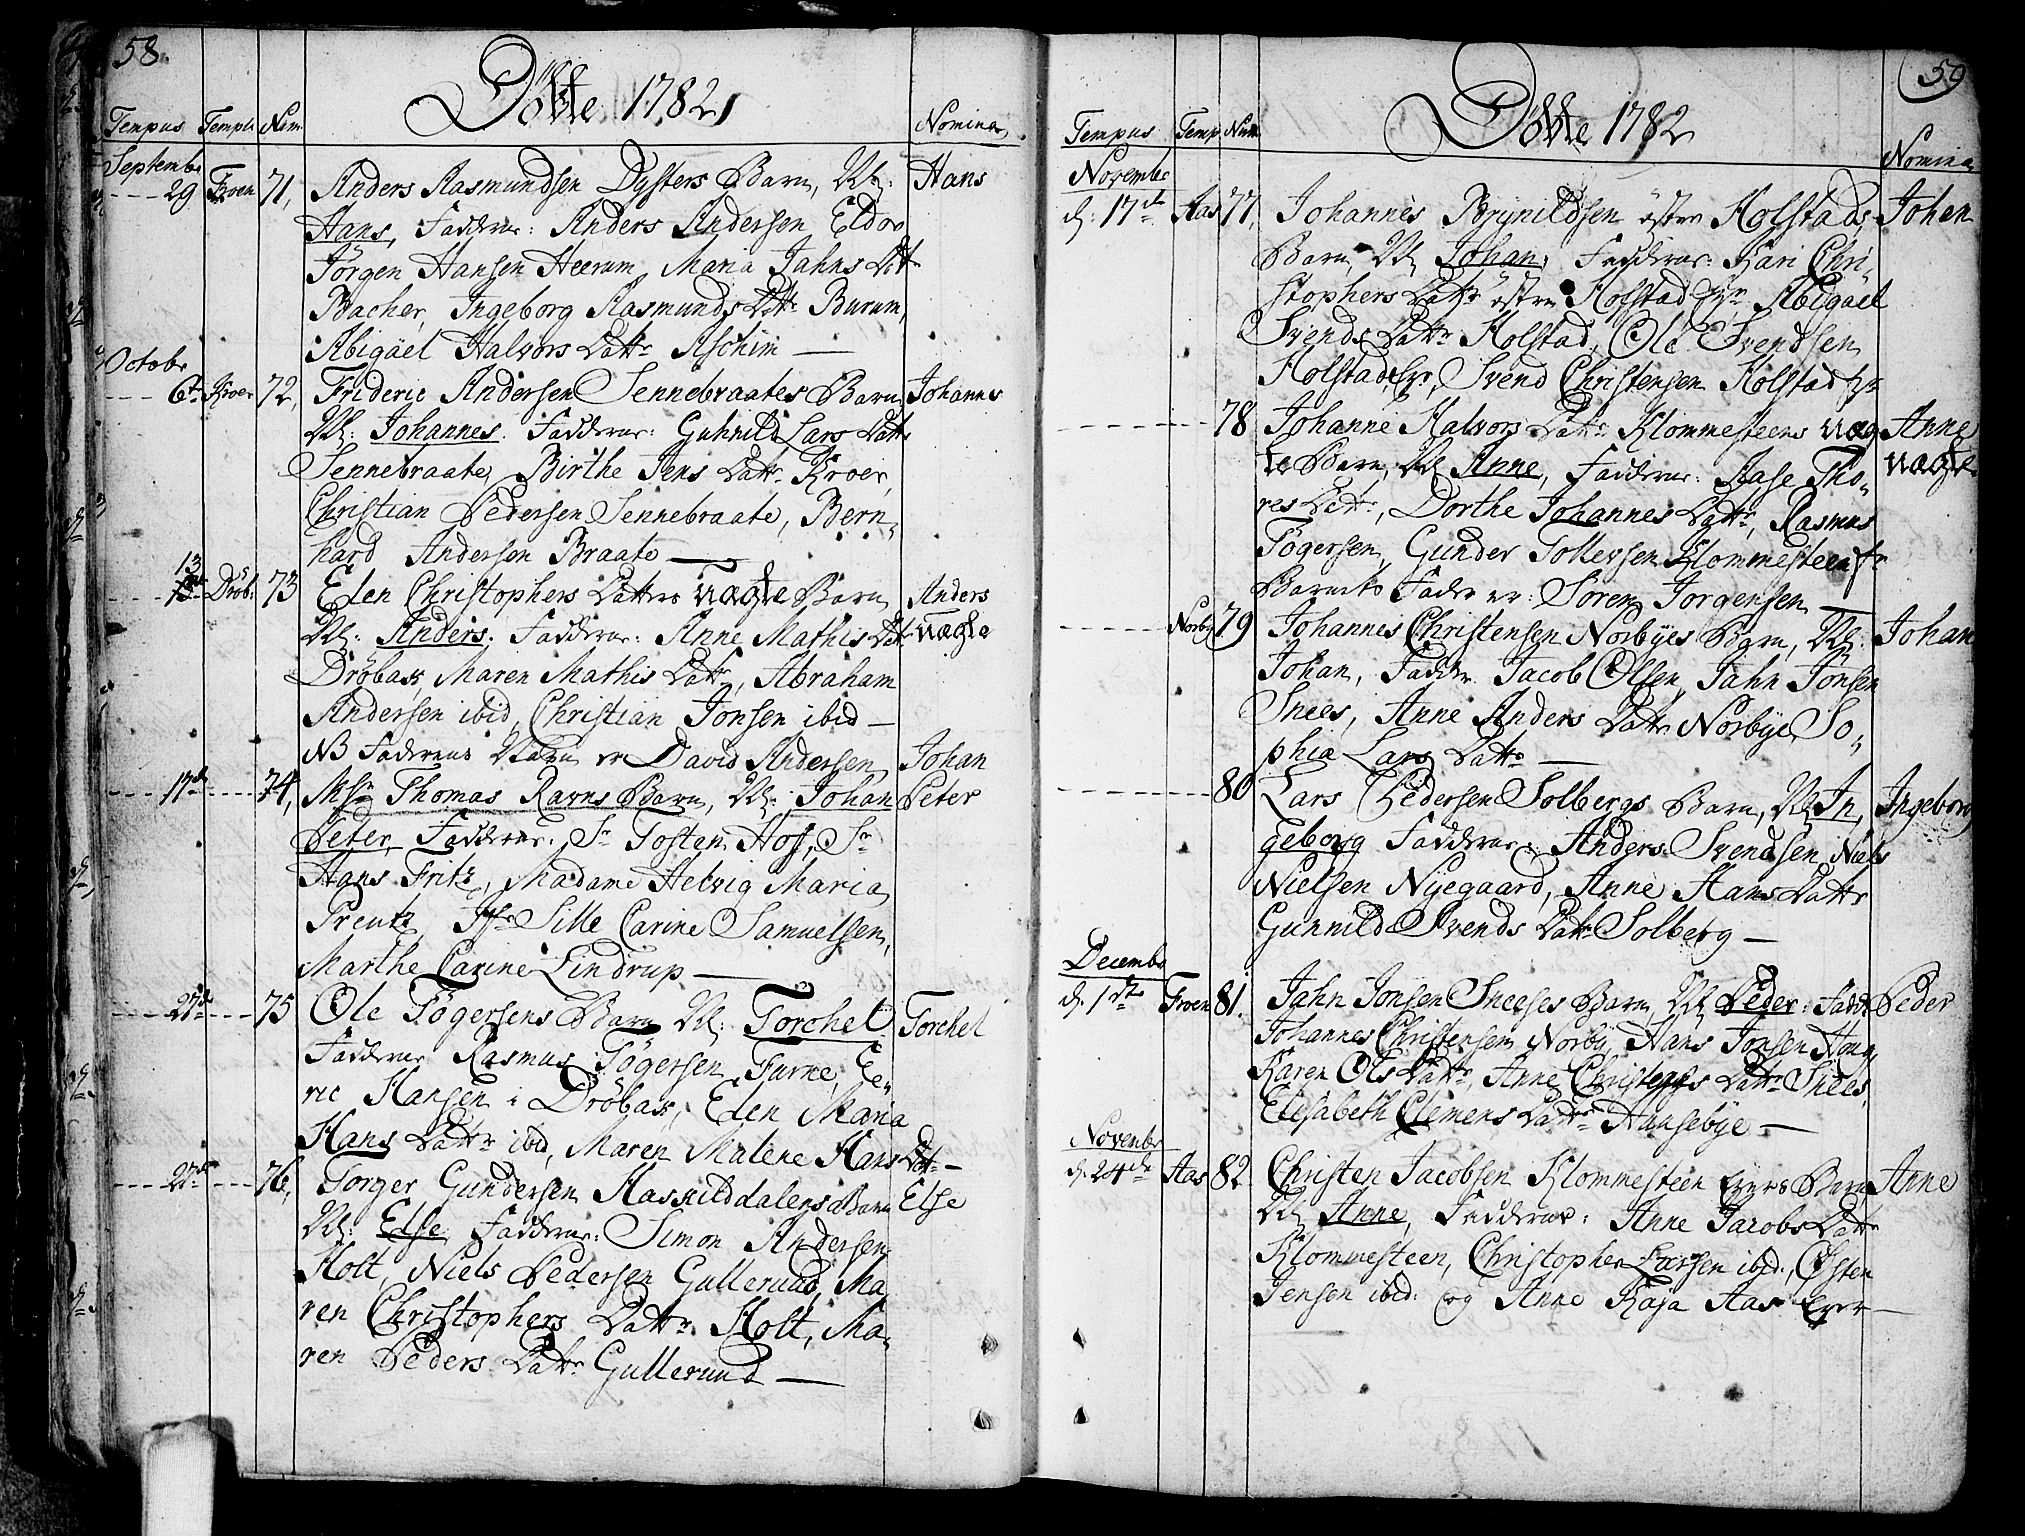 58.
Döbte 1782
Tempus Templ Num. Nomina
Septembr
29 Froen 71, Anders Rasmundsen Dysters Barn, N: Hans
Hans, Fadderne: Anders Andersen Eldor
Jörgen Hansen Heerum, Maria Jahns Dat
Bacher, Ingeborg Rasmunds Datr Burum,
Abigäel Halvors Datr Aschim —
Octobr
6t Kroer 72, Frideric Andersen Sennebraates Barn Johannes
N: Johannes. Fadderne: Guhnild Lars Datr
Sennebraate, Birthe Jens Datr Kroer,
Christian Pedersen Sennebraate, Bern,
hard Andersen Braate —
13 Dröb: 73 Elen Christophers Datters uægte Barn Anders
N: Anders. Fadderne: Anne Mathis Dat uægte
Dröbak, Maren Mathis Datr, Abraham
Andersen ibid, Christian Jonsen ibid —
NB Faderens Navn er David Andersen Johan
17de 74, Msr Thomas Ravns Barn, N: Johan Peter
Peter, Fadderne: Sr Tosten Hof, Sr
Hans Fritz, Madame Helvig Maria
Preutz, Jfr Sille Carine Samuelsen,
Marthe Carine Lindrup —
27de 75 Ole Tögersens Barn N: Torchel Torchel
Fadderne Rasmus Tögersen Furne, E,
ric Hansen i Dröbak, Elen Maria
Hans Datr ibid, Maren Malene Hans Dat —
27de 76, Torger Gundersen Haskilddalens Barn Else
N: Else, Fadderne: Simon Andersen
Holt, Niels Pedersen Gulleruud, Ma,
ren Christophers Datr Holt, Ma,
ren Peders Datr Gulleruud —
59
Döbte 1782
Tempus Temp Num Nomina
Novembr
d: 17de Aas 77, Johannes Brynildsen östre Holstads Johan
Barn, N Johan, Fadderne: Kari Chri,
stophers Datr östre Holstad Eyr, Abigäel
Svends Datr Holstad, Ole Svendsen
Holstad Eyr, Svend Christensen Holstad Eyr
78 Johanne Halvors Datr Klommesteens uæg Anne
te Barn, N Anne, Fadderne: Aase Tho, uægte
res Datr, Dorthe Johannes Datr, Rasmus
Tögersen, Gunder Tollevsen Klommesteen,
Barnets Fader er: Sören Jörgensen —
Norby 79 Johannes Christensen Norbyes Barn, N: Johan
Johan, Fadder Jacob Olsen, Jahn Jonsen
Snees, Anne Anders Datr Norbye, So,
phia Lars Datr —
80 Lars Pedersen Solbergs Barn, N In, Ingeborg
geborg Fadderne: Anders Svendsen, Niels
Nielsen Nyegaard, Anne Hans Datr
Gunnild Svends Datr Solberg —
Decembr
d. 1ste Froen 81. Jahn Jonsen Sneeses Barn, N Peder: Fadd Peder
Johannes Christensen Norby, Hans Jonsen Houg,
Karen Ols Datr, Anne Christens Datr Snees,
Elisabeth Clemens Datr Haugsebye —
Novembr
d. 24de Aas 82. Christen Jacobsen Klommesteen Eyers Barn Anne
N Anne, Fadderne: Anne Jacobs Datr
Klommesteen, Christopher Larsen ibid:, Østen
Jensen ibid: og Anne Kaja Aas Eyer —